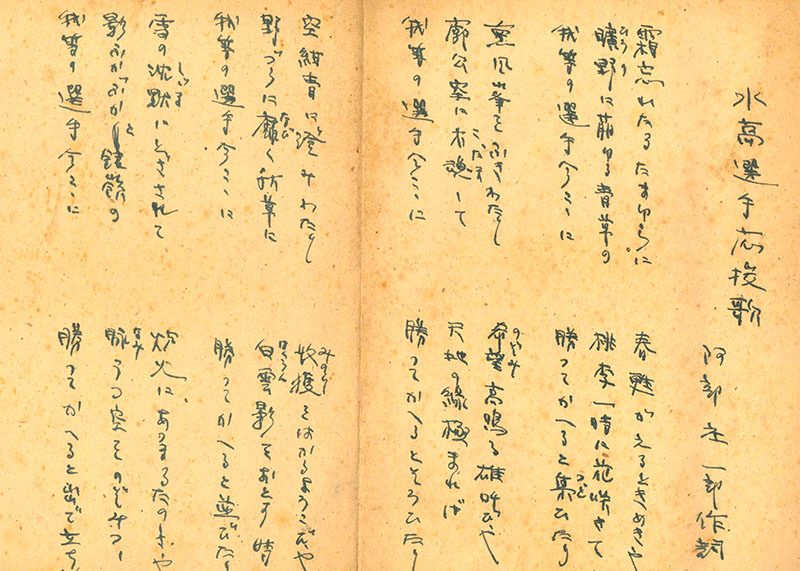 水高選手応援歌
阿部正一郎作詞
霜忘れたるたまゆらに
春甦がえるときめきや
曠野に萌ゆる青草の
ひろの
桃李一時に花咲きて
我等の選手今こゝに
勝ってかへると集ひたり
つど
薫風峯をふきわたし
希望高鳴る雄叫びや
のぞみ
郭公空に木魂して
こだま
天地の緑極まれば
我等の選手今こゝに
勝ってかへるとそろひたり
空紺青に澄みわたし
す
収獲をはかるよろこびや
みのり
野づらに靡く秋草に
なび
白雲影をおとす時
はくうん
我等の選手今こゝに
勝ってかへると並びたり
雪の沈黙にとざされて
しゞま
炊火にあつまるたのしさや
影ふかぶかと
脉うつ空をのぞみつゝ
なみ
我等の選手今こゝに
勝ってかへると出で立ち